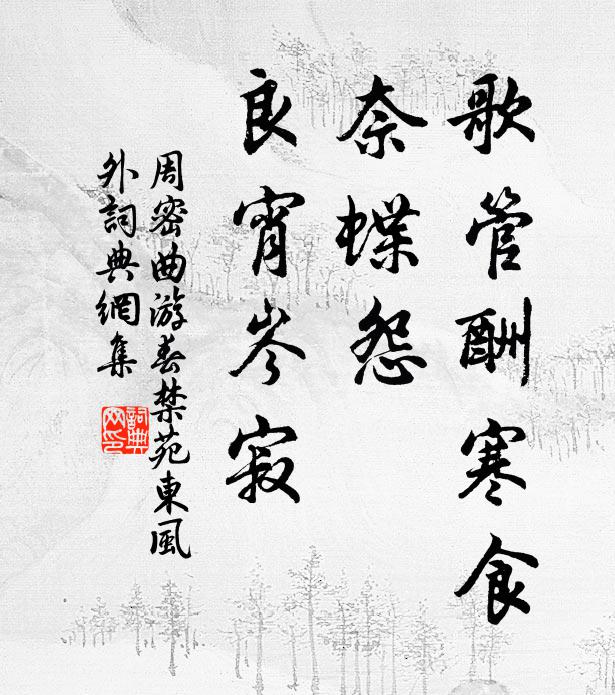 歌管酬寒食
奈蝶怨
良宵岑寂
周密曲游春禁苑東風
外詞典網集
詞典網印